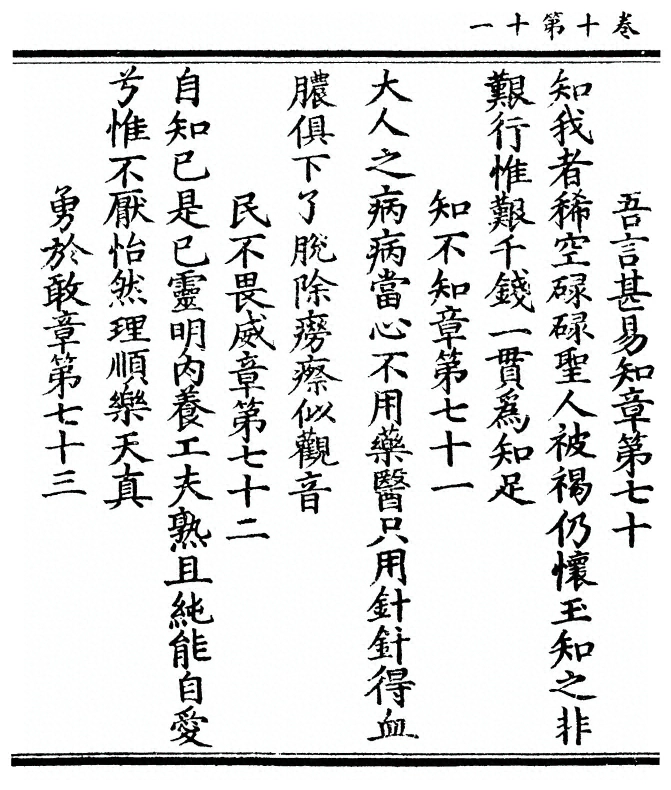 卷十第十一
吾言甚易知章第七十
知我者稀空碌碌聖人被褐仍懷玉知之非
艱行惟艱千錢一貫爲知足
知不知章第七十一
大人之病病當心不用藥醫只用針針針得血
膿俱下了脫除癆瘵似觀音
民不畏威章第七十二
自知已是已靈明內養工夫熟且純能自愛
兮惟不厭怡然理順樂天真
勇於敢章第七十三